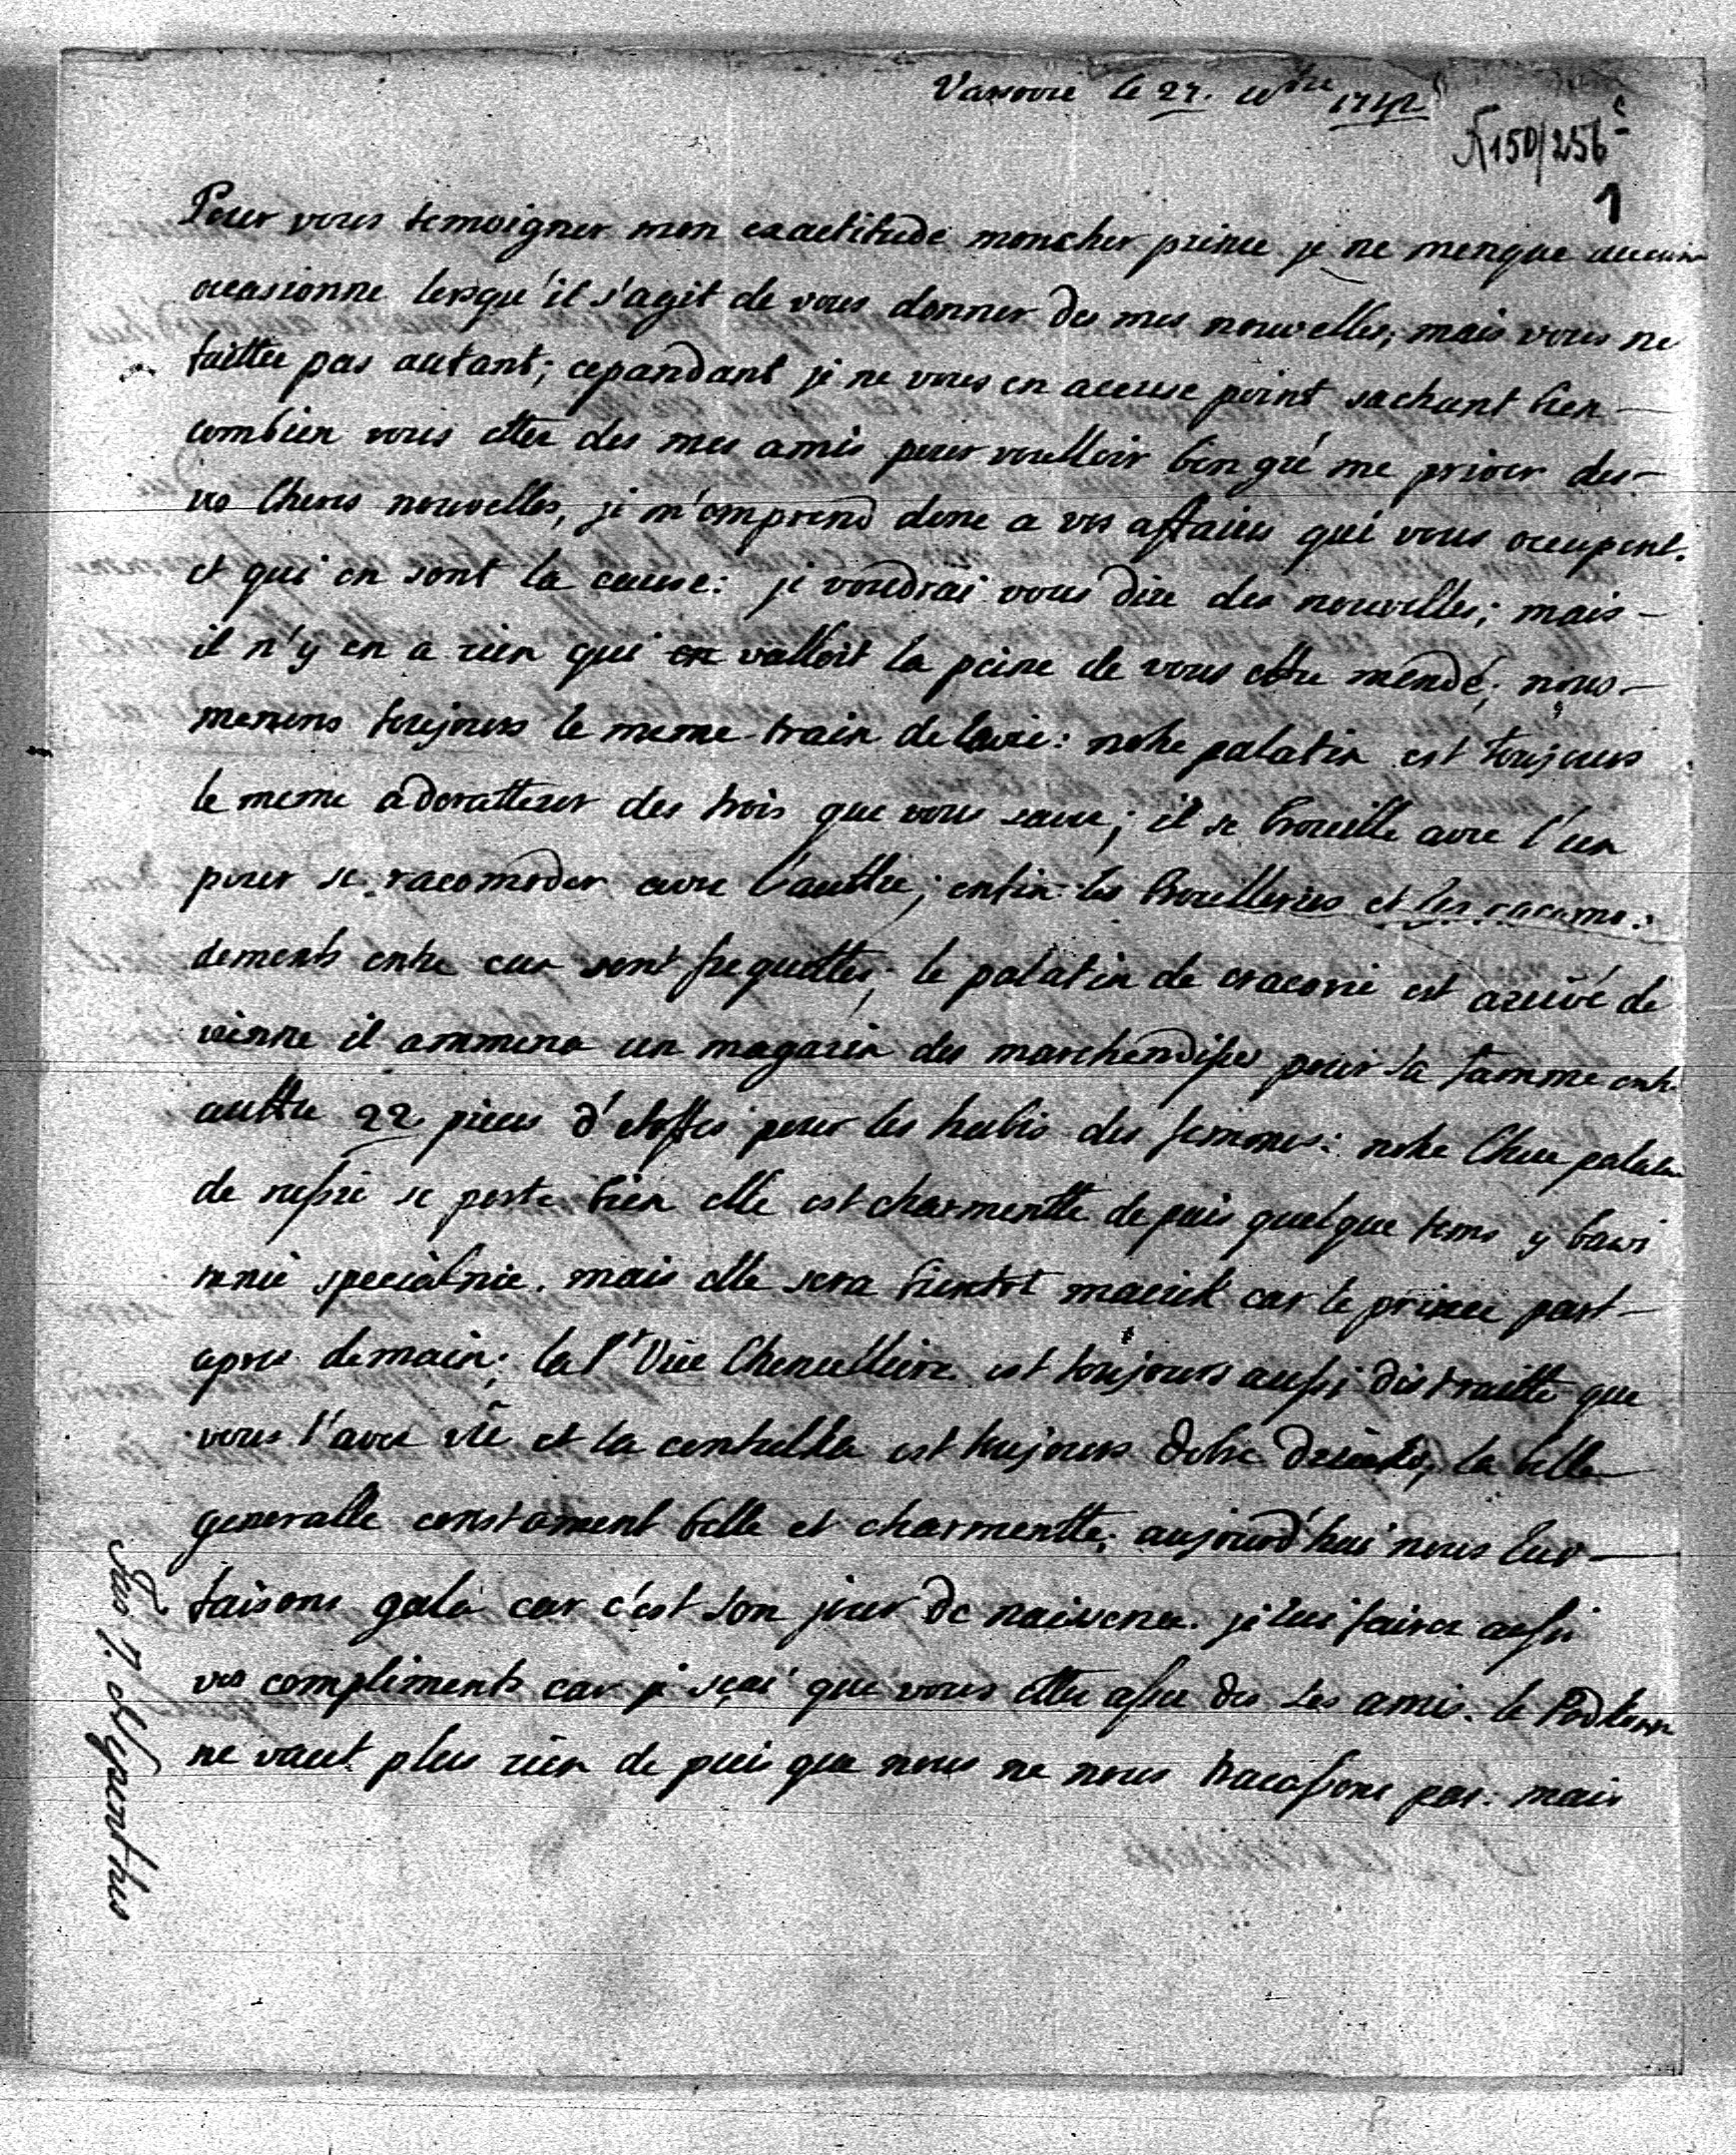 Varsovie le 27. 10bre 1742
K150/256c
1
Pour vous temoigner mon exactitude moncher prince je ne menque aucune
occasionne lorsqu'il s'agit de vous donner des mes nouvelles, mais vous ne
faittee pas autant; cepandant je ne vous en accuse point sachant bien
combien vous ettee des mes amis pour voulloir bengré me priver des
vos cheres nouvelles, je m'emprend donc a vos affaires qui vous occupent.
et qui en sont la cause: je voudrai vous dire des nouvelles; mais
il n'y en a rien qui valloit la peine de vous ettre mendé; nous
menons toujours le meme train de lavie: notre palatin est toujours
le meme adoratteur des trois que vous save; il se brouille avec l'un
pour se racomoder avec l'auttre; enfin les brouilleries et les racomo:
dements entre eux sont frequettes; le palatin de cracovie est arrivé de
vienne il ammena un magazin des marchendises pour sa famme entr
auttre 22 pieces d'etoffes pour les habis des femmes: notre chere palatin
de russie se porte bien elle est charmentte de puis quelque tems y bawi
mnie specialnie. mais elle sera bientot car le prince part
apres demain; la Pe Vice Chencelliere est toujours aussi distraitte que
vous l'avez vû et la est toujours la belle
generalle constament belle et charmentte; aujourd'hui nous luy
faisons gala car c'est son jour de naissence. je lui fairez aussi
vos compliments car je sçai que vous ettee assee des ses amis. le
ne vaut plus rien de puis que nous ne nous tracassons pas: mais